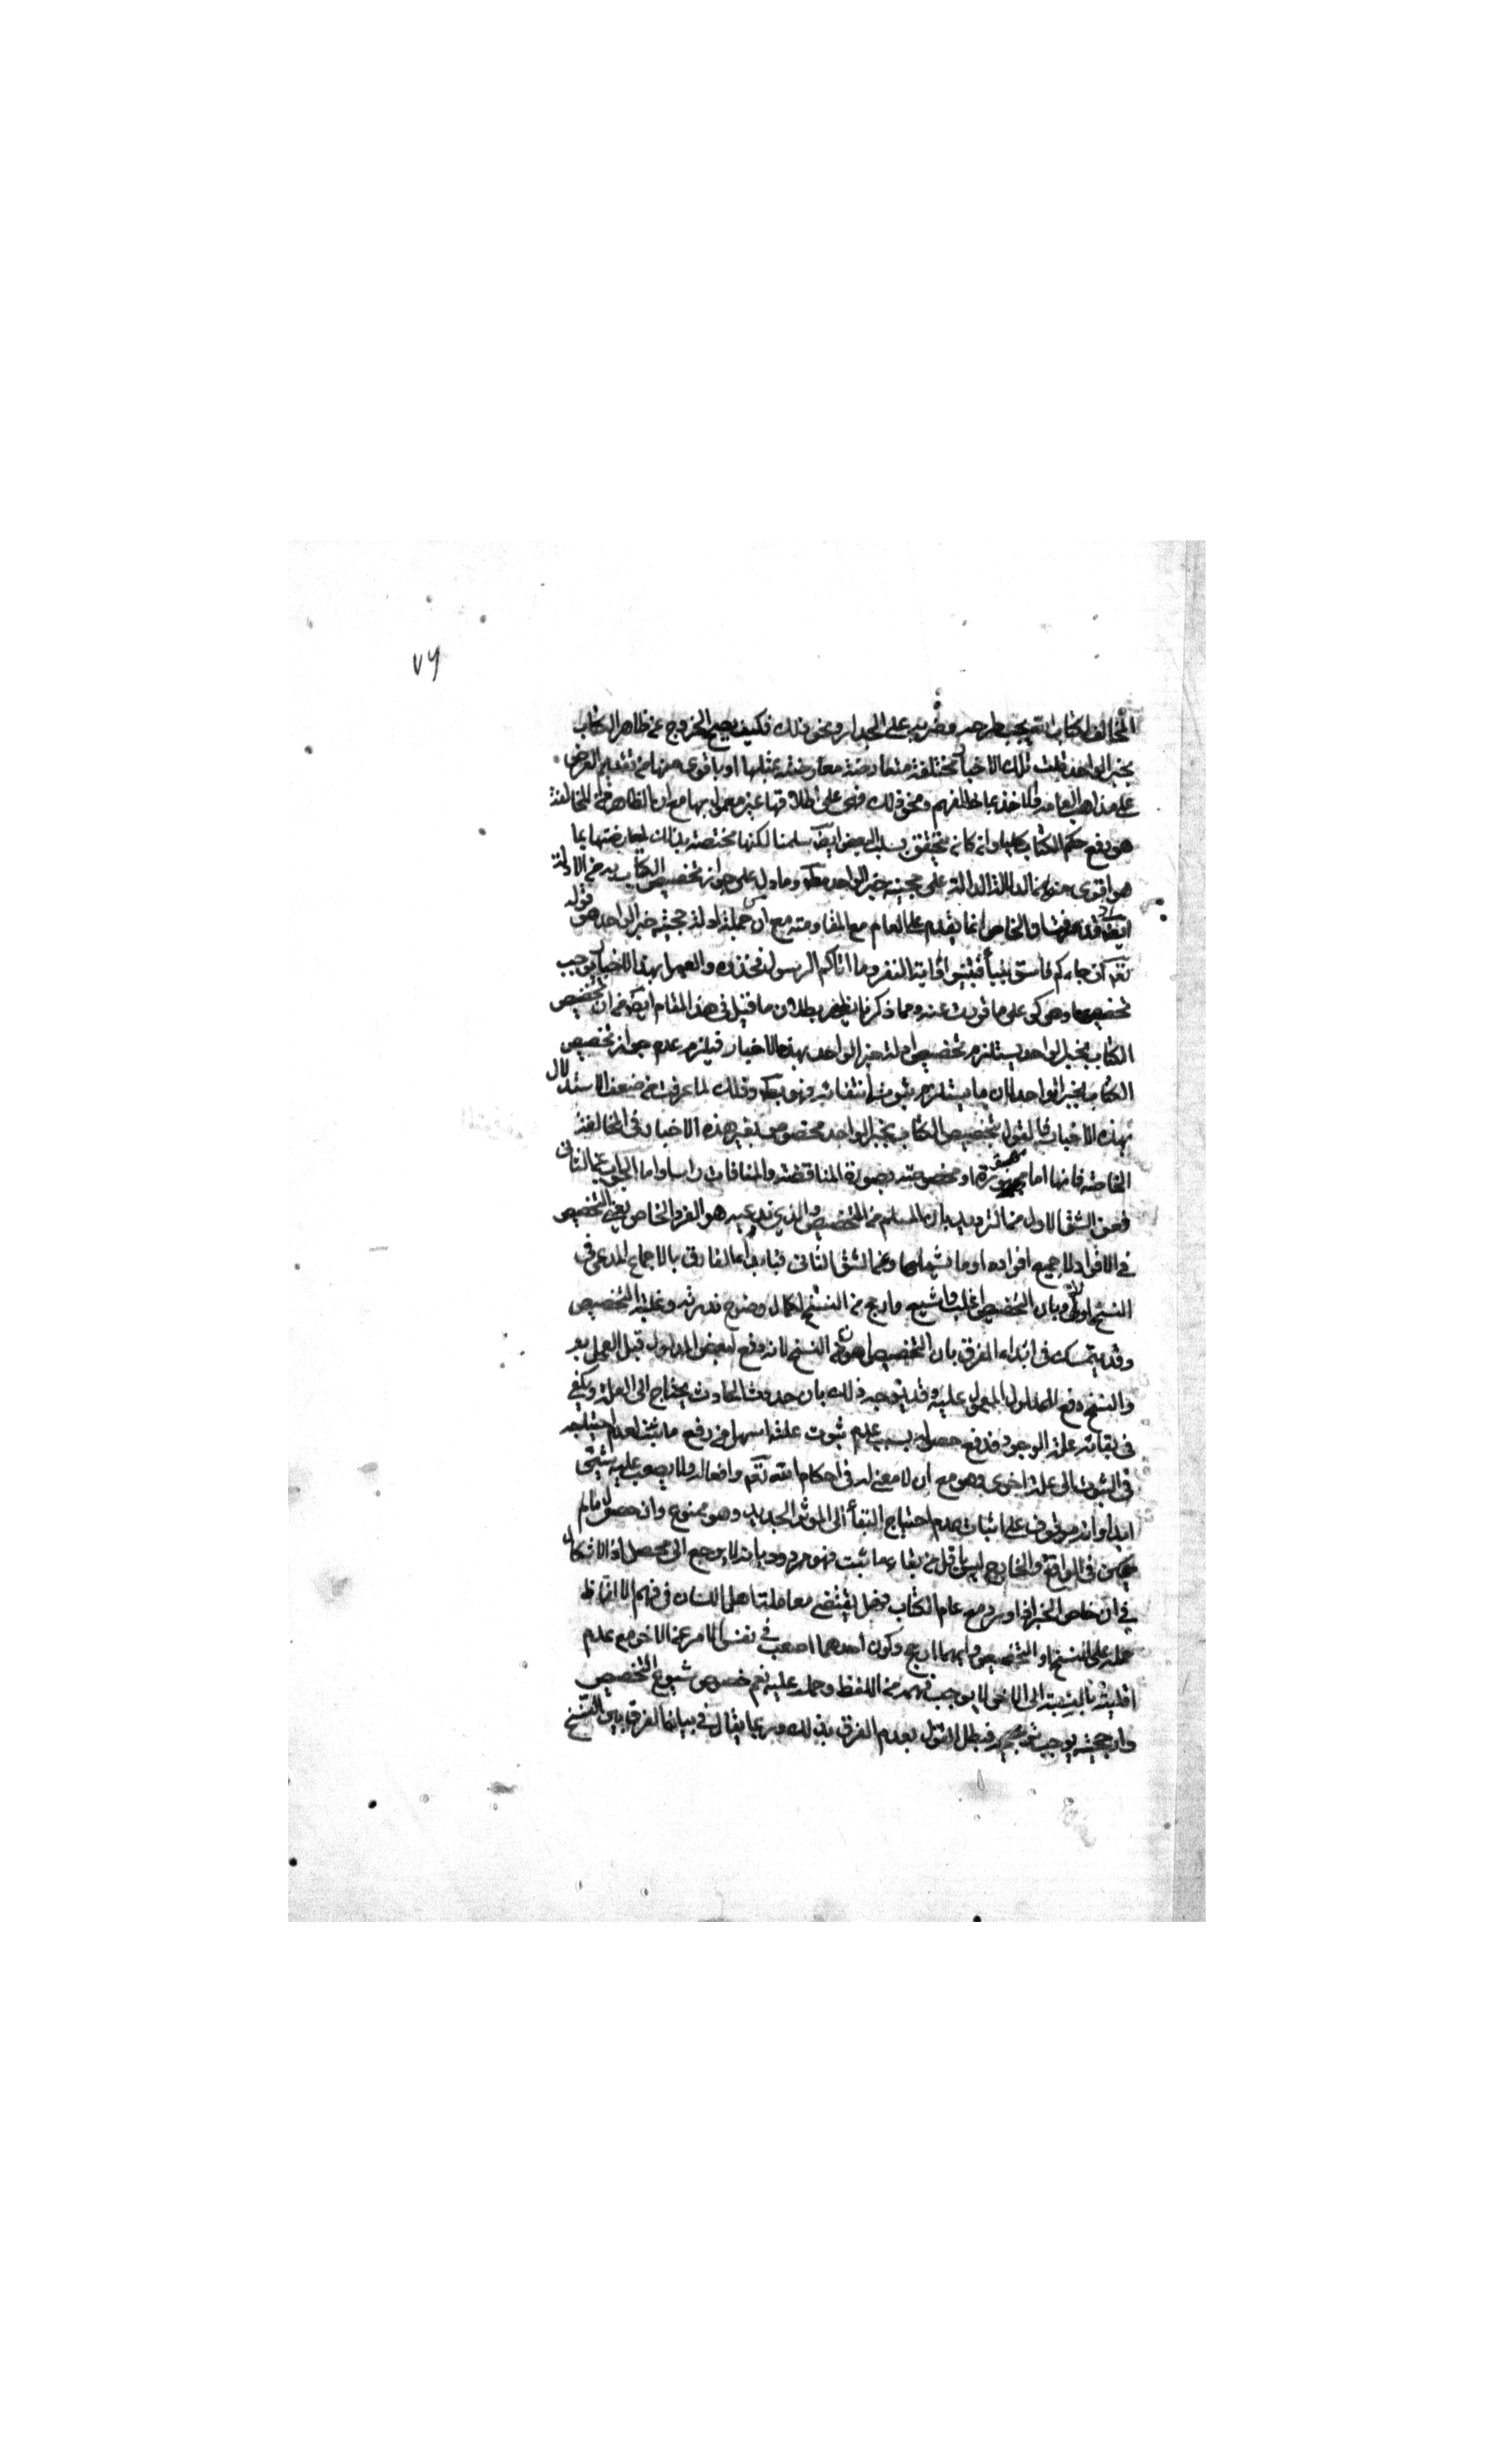 ٧٩
المخالف لكتاب الله يجب طرحه وضربه على الجدار ونحو ذلك فكيف يصح الخروج عن ظاهر الكتاب
بخبر الواحد قلت تلك الاخبار مختلفة متعارضة معارضة بمثلها او باقوى منها من تقديم العرض
على مذاهب العامة والاخذ بما خالفهم ونحو ذلك فهى على اطلاقها غير معمول بها مع ان الظاهر من المخالفة
هو رفع حكم الكتاب كليا وان كان يتحقق بسلب البعض ايضا سلمنا لكنها مختصة بذلك لمعارضتها بما
هو اقوى منها من الدالة على حجية خبر الواحد مطلقا وما دل على جواز تخصيص الكتاب به من الادلة
ايضا وقد عرفت ان الخاص انما يقدم على العام مع المقاومة مع ان من جملة ادلة حجية خبر الواحد هو قوله
تعالى ان جاءكم فاسق بنبأ فتبينوا واية النفر وما اتاكم الرسول فخذوه والعمل بهذه الاخبار يوجب
تخصيصها وهو كر على ما فررت عنه ومما ذكرنا يظهر بطلان ما قيل فى هذا المقام ايضا من ان تخصيص
الكتاب بخبر الواحد يستلزم تخصيص ادلة خبر الواحد بهذه الاخبار فيلزم عدم جواز تخصيص
الكتاب بخبر الواحد لان ما يستلزم ثبوته انتفائه فهو بط وذلك لما عرفت من ضعف الاستدلال
بهذه الاخبار فالقول بتخصيص الكتاب بخبر الواحد مخصوص بغير هذه الاخبار فى المخالفة
الخاصة فانها اما مهجورة او مخصوصة بصورة المناقضة والمنافات راسا واما الجواب عن الثانى
فعن الشق الاول من الترديد بان المسلم من التخصيص والذى ندعيه هو الفرد الخاص يعنى التخصيص
فى الافراد لا جميع افراده او ما يشملها وعن الشق الثانى فبابداء الفارق بالاجماع المدعى فى
النسخ اولا وبان التخصيص اغلب واشيع وارجح من النسخ لكمال وضوح ندرته وغلبة التخصيص
وقد يتمسك فى ابداء الفرق بان التخصيص اهون من النسخ لانه دفع لبعض المدلول قبل العمل به
والنسخ رفع المدلول المعمول عليه وقد يوجه ذلك بان حدوث الحادث يحتاج الى العلة ويكفى
فى بقائه علة الوجود فدفع حصوله بسبب عدم ثبوت علته اسهل من رفع ما ثبت لعدم احتياجه
فى الثبوت الى علة اخرى وهو مع ان لا معنى له فى احكام الله تعالى وافعاله ولا يصعب عليه شيئى
ابدا وانه موقوف على اثبات عدم احتياج البقاء الى المؤثر الجديد وهو ممنوع وان حصول ما لم
يكن فى الواقع والخارج ليس باقل من بقاء ما ثبت فهو مردود بانه لا يرجع الى محصل اذ الاشكال
فى ان خاص الخبر اذا ورد مع عام الكتاب فهل يقتضى معاملة اهل اللسان فى فهم الالفاظ
حمله على النسخ او التخصيص وايهما ارجح وكون احدهما اصعب فى نفس الامر عن الاخر مع عدم
اقليته بالنسبة الى الاخر لا يوجب فهمه من اللفظ وحمله عليه نعم خصوص شيوع التخصيص
وارجحيته يوجب ترجيحه فبطل القول بعدم الفرق بذلك وربما يقال فى بيان الفرق بين النسخ